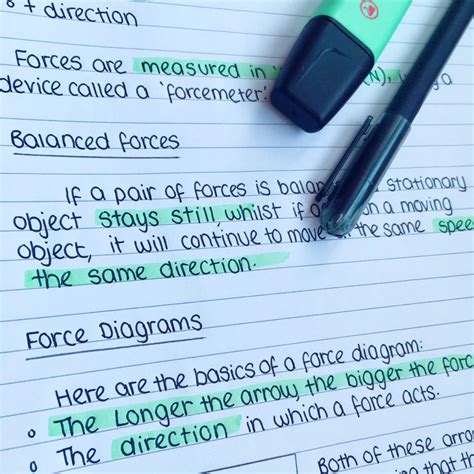 + direction
Forces are measured in (N), a
device called a 'forcemeter'.
Balanced forces
If a pair of forces is stationary
object stays still, whilst if on a moving
object, it will continue to move the same
the same direction.
Force Diagrams
Here are the basics of a force diagram:
o The Longer the arrow, the bigger the
o The direction in which a force acts.
Both of these
that